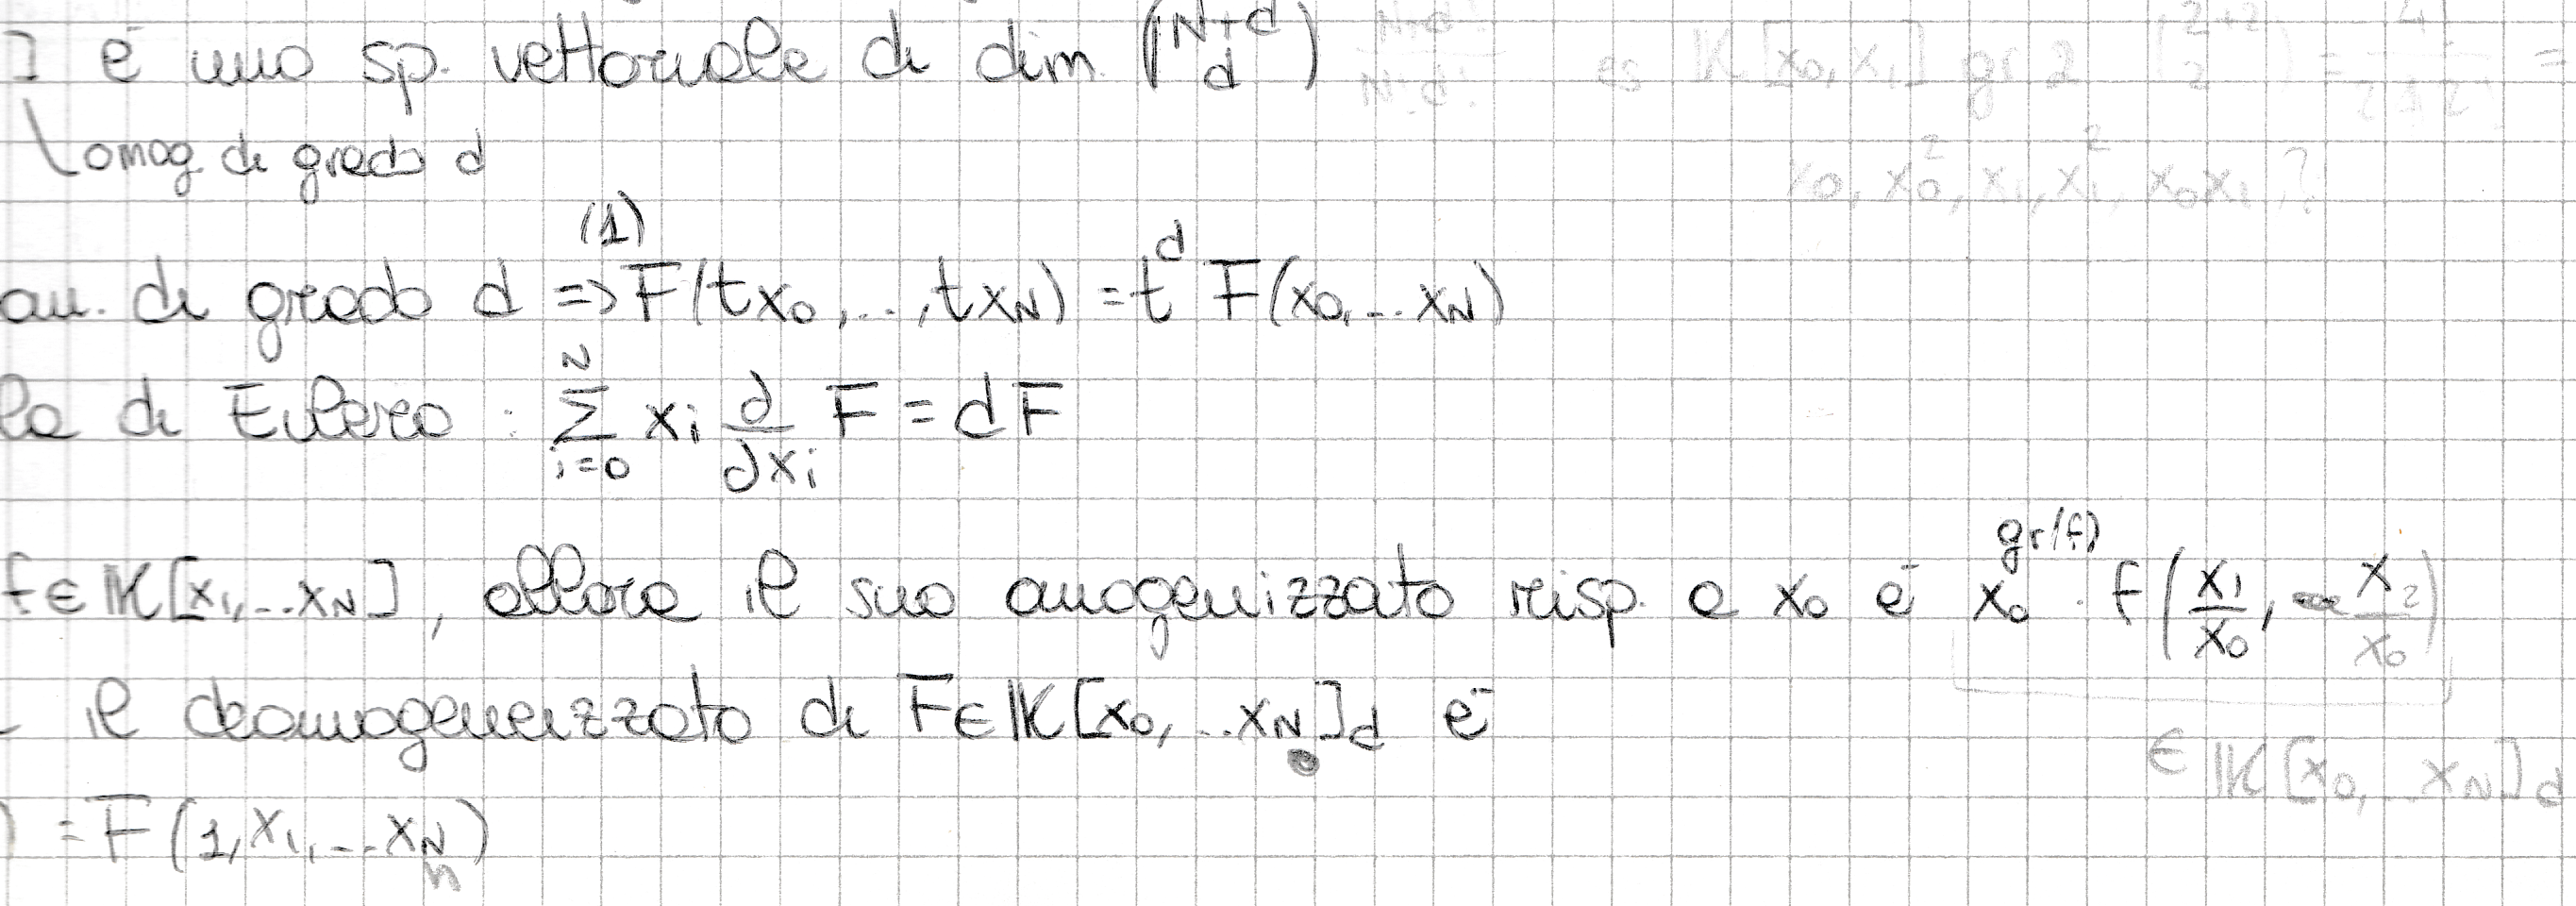 ] è uno sp. vettoriale di dim (N+d d) N+d! / N!d! es K[x₀,x₁] gr 2 (2+2 2) = 4! / 2!2! =
omog di grado d x₀, x₀², x₁, x₁², x₀x₁ ?
om. di grado d ⇒ (1) F(tx₀,..,txN) = t^d F(x₀,...xN)
la di Eulero : ∑_{i=0}^{N} xᵢ ∂/∂xᵢ F = dF
f∈K[x₁,..xN], allora il suo omogenizzato risp. a x₀ è x₀^{gr(f)} · f(x₁/x₀, x₂/x₀)
- il deomogeneizzato di F∈K[x₀,..xN]d è
∈ K[x₀,..xN]d
) = F(1,x₁,...xN)
n